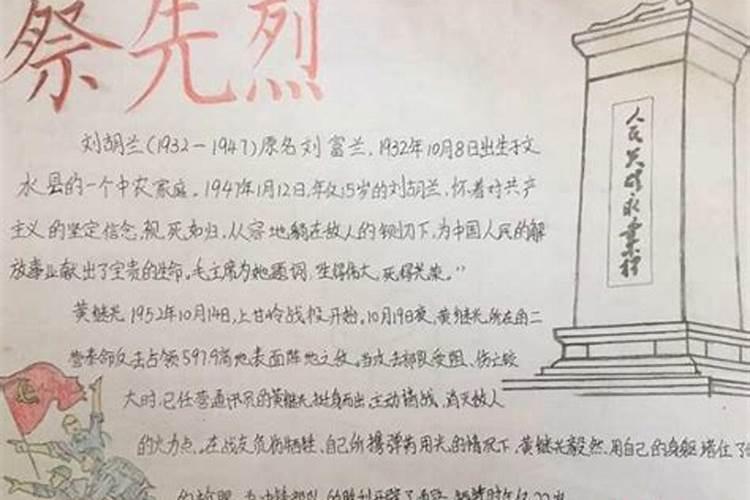 祭先烈
刘胡兰(1932一1947)原名刘富兰，1932年10月8日出生于文
水县的一个中农家庭。1947年1月12日,年仅15岁的刘胡兰,怀着对共产
主义的坚定信念,视死如归,从容地躺在敌人的铡刀下,为中国人民的解
放事业献出了宝贵的生命。毛主席为她题词,"生得伟大,死得光荣。"
黄继光1952年10月14日,上甘岭战役开始。10月19日夜,黄继光所在的二
营奉命反击占领597.9高地表面阵地之敌。当攻击部队受阻、伤亡较
大时,已任营通讯员的黄继光挺身而出,主动请战,消灭敌人
的火力点。在战友负伤牺牲、自己所携弹药用光的情况下,黄继光毅然用自己的身躯堵住了
人民英雄永垂不朽